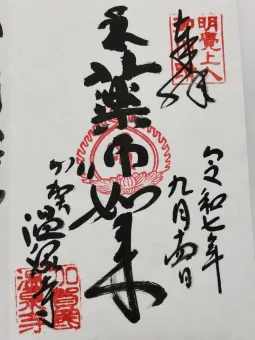 奉拝
明覺上人
令和七年
九月十四日
薬師如来
加賀
温泉寺
加賀國
温泉寺